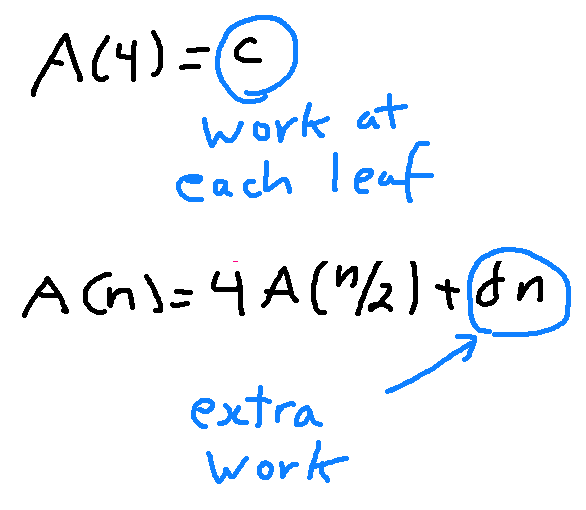 A(4) = c
work at
each leaf
A(n) = 4A(n/2) + dn
extra
work